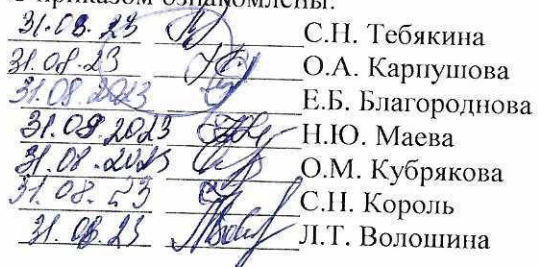 приказом ознакомлены:
31.08.23 С.Н. Тебякина
31.08.23 О.А. Карпушова
31.08.2023 Е.Б. Благороднова
31.08.2023 Н.Ю. Маева
31.08.2023 О.М. Кубрякова
31.08.23 С.Н. Король
31.08.23 Л.Т. Волошина